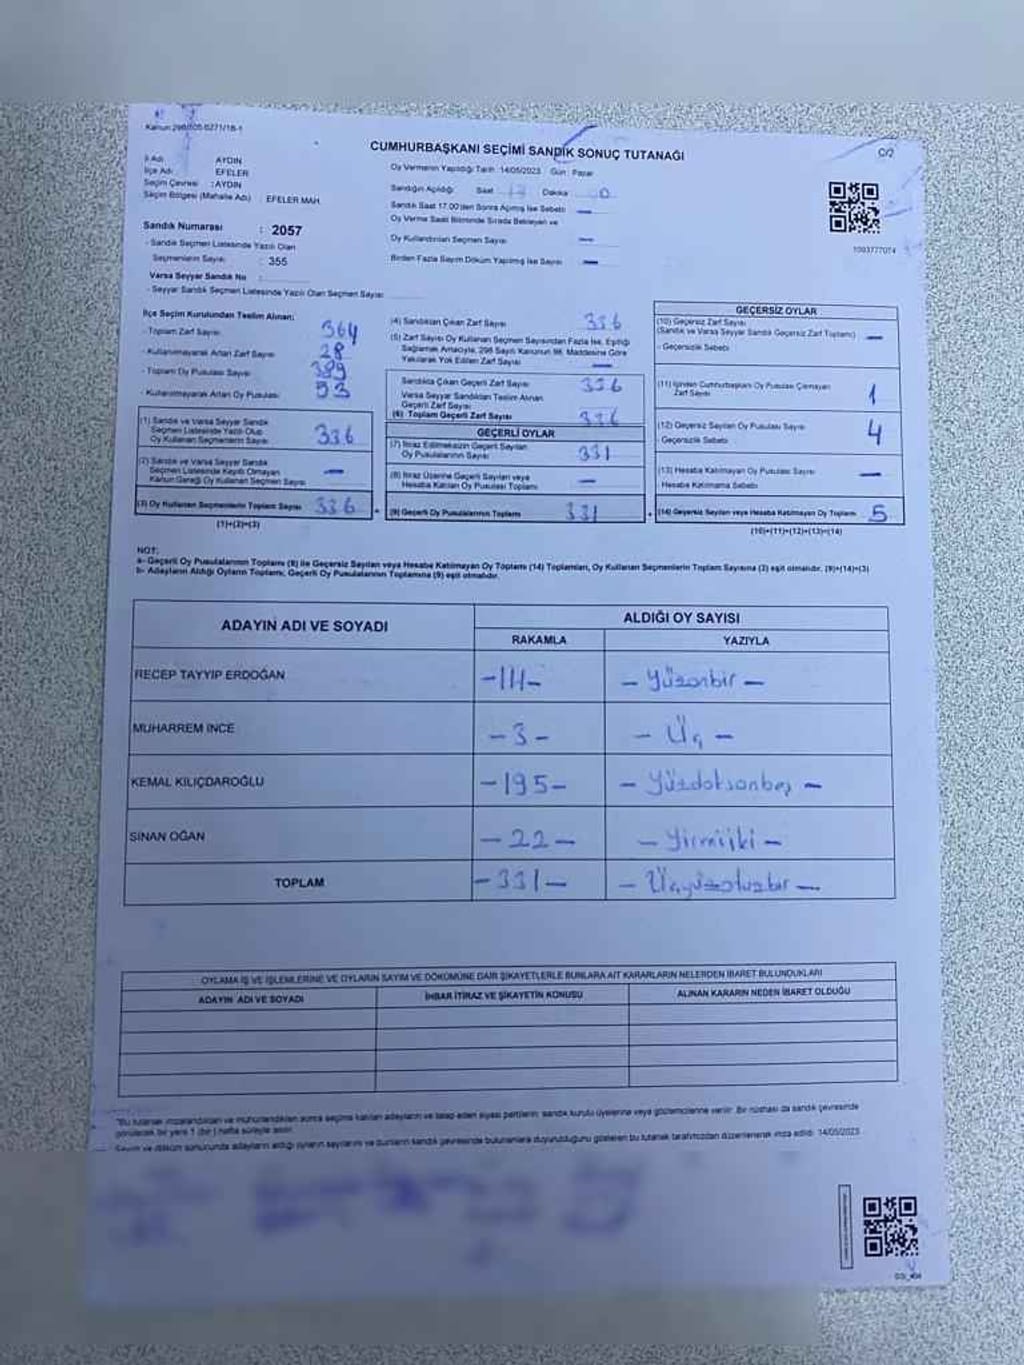 Kanun:298/105-6271/18-1
CUMHURBAŞKANI SEÇİMİ SANDIK SONUÇ TUTANAĞI
C/2
İl Adı : AYDIN
İlçe Adı : EFELER
Seçim Çevresi : AYDIN
Seçim Bölgesi (Mahalle Adı) : EFELER MAH.
Sandık Numarası : 2057
- Sandık Seçmen Listesinde Yazılı Olan
Seçmenlerin Sayısı : 355
Varsa Seyyar Sandık No :
- Seyyar Sandık Seçmen Listesinde Yazılı Olan Seçmen Sayısı
Oy Vermenin Yapıldığı Tarih :14/05/2023 Gün : Pazar
Sandığın Açıldığı Saat Dakika
Sandık Saat 17.00'den Sonra Açılmış İse Sebebi —
Oy Verme Saati Bitiminde Sırada Bekleyen ve
Oy Kullandırılan Seçmen Sayısı —
Birden Fazla Sayım Döküm Yapılmış İse Sayısı —
1093777074
İlçe Seçim Kurulundan Teslim Alınan:
- Toplam Zarf Sayısı 364
- Kullanılmayarak Artan Zarf Sayısı 28
- Toplam Oy Pusulası Sayısı 389
- Kullanılmayarak Artan Oy Pusulası 53
(1) Sandık ve Varsa Seyyar Sandık
Seçmen Listesinde Yazılı Olup
Oy Kullanan Seçmenlerin Sayısı 336
(2) Sandık ve Varsa Seyyar Sandık
Seçmen Listesinde Kayıtlı Olmayan
Kanun Gereği Oy Kullanan Seçmen Sayısı —
(3) Oy Kullanan Seçmenlerin Toplam Sayısı 336
(1)+(2)=(3)
(4) Sandıktan Çıkan Zarf Sayısı 336
(5) Zarf Sayısı Oy Kullanan Seçmen Sayısından Fazla İse, Eşitliği
Sağlamak Amacıyla, 298 Sayılı Kanunun 98. Maddesine Göre
Yakılarak Yok Edilen Zarf Sayısı —
Sandıkta Çıkan Geçerli Zarf Sayısı 336
Varsa Seyyar Sandıktan Teslim Alınan
Geçerli Zarf Sayısı
(6) Toplam Geçerli Zarf Sayısı 336
GEÇERLİ OYLAR
(7) İtiraz Edilmeksizin Geçerli Sayılan
Oy Pusulalarının Sayısı 331
(8) İtiraz Üzerine Geçerli Sayılan veya
Hesaba Katılan Oy Pusulası Toplamı —
(9) Geçerli Oy Pusulalarının Toplamı 331
GEÇERSİZ OYLAR
(10) Geçersiz Zarf Sayısı
(Sandık ve Varsa Seyyar Sandık Geçersiz Zarf Toplamı) —
- Geçersizlik Sebebi
(11) İçinden Cumhurbaşkanı Oy Pusulası Çıkmayan
Zarf Sayısı 1
(12) Geçersiz Sayılan Oy Pusulası Sayısı 4
- Geçersizlik Sebebi
(13) Hesaba Katılmayan Oy Pusulası Sayısı —
Hesaba Katılmama Sebebi
(14) Geçersiz Sayılan veya Hesaba Katılmayan Oy Toplamı 5
(10)+(11)+(12)+(13)=(14)
NOT:
a- Geçerli Oy Pusulalarının Toplamı (9) ile Geçersiz Sayılan veya Hesaba Katılmayan Oy Toplamı (14) Toplamları, Oy Kullanan Seçmenlerin Toplam Sayısına (3) eşit olmalıdır. (9)+(14)=(3)
b- Adayların Aldığı Oyların Toplamı, Geçerli Oy Pusulalarının Toplamına (9) eşit olmalıdır.
ADAYIN ADI VE SOYADI
ALDIĞI OY SAYISI
RAKAMLA YAZIYLA
RECEP TAYYIP ERDOĞAN -111- - Yüzonbir -
MUHARREM İNCE - 3 - - Üç -
KEMAL KILIÇDAROĞLU -195- - Yüzdoksanbeş -
SİNAN OĞAN - 22 - - Yirmiiki -
TOPLAM - 331 - - Üçyüzotuzbir -
OYLAMA İŞ VE İŞLEMLERİNE VE OYLARIN SAYIM VE DÖKÜMÜNE DAİR ŞİKAYETLERLE BUNLARA AİT KARARLARIN NELERDEN İBARET BULUNDUKLARI
ADAYIN ADI VE SOYADI İHBAR İTİRAZ VE ŞİKAYETİN KONUSU ALINAN KARARIN NEDEN İBARET OLDUĞU
"Bu tutanak imzalandıktan ve mühürlendikten sonra seçime katılan adayların ve talep eden siyasi partilerin sandık kurulu üyelerine veya gözlemcilerine verilir. Bir nüshası da sandık çevresinde
görülecek bir yere 1 (bir) hafta süreyle asılır.
Sayım ve döküm sonucunda adayların aldığı oyların sayılarını ve bunların sandık çevresinde bulunanlara duyurulduğunu gösteren bu tutanak tarafımızdan düzenlenerek imza edildi. 14/05/2023